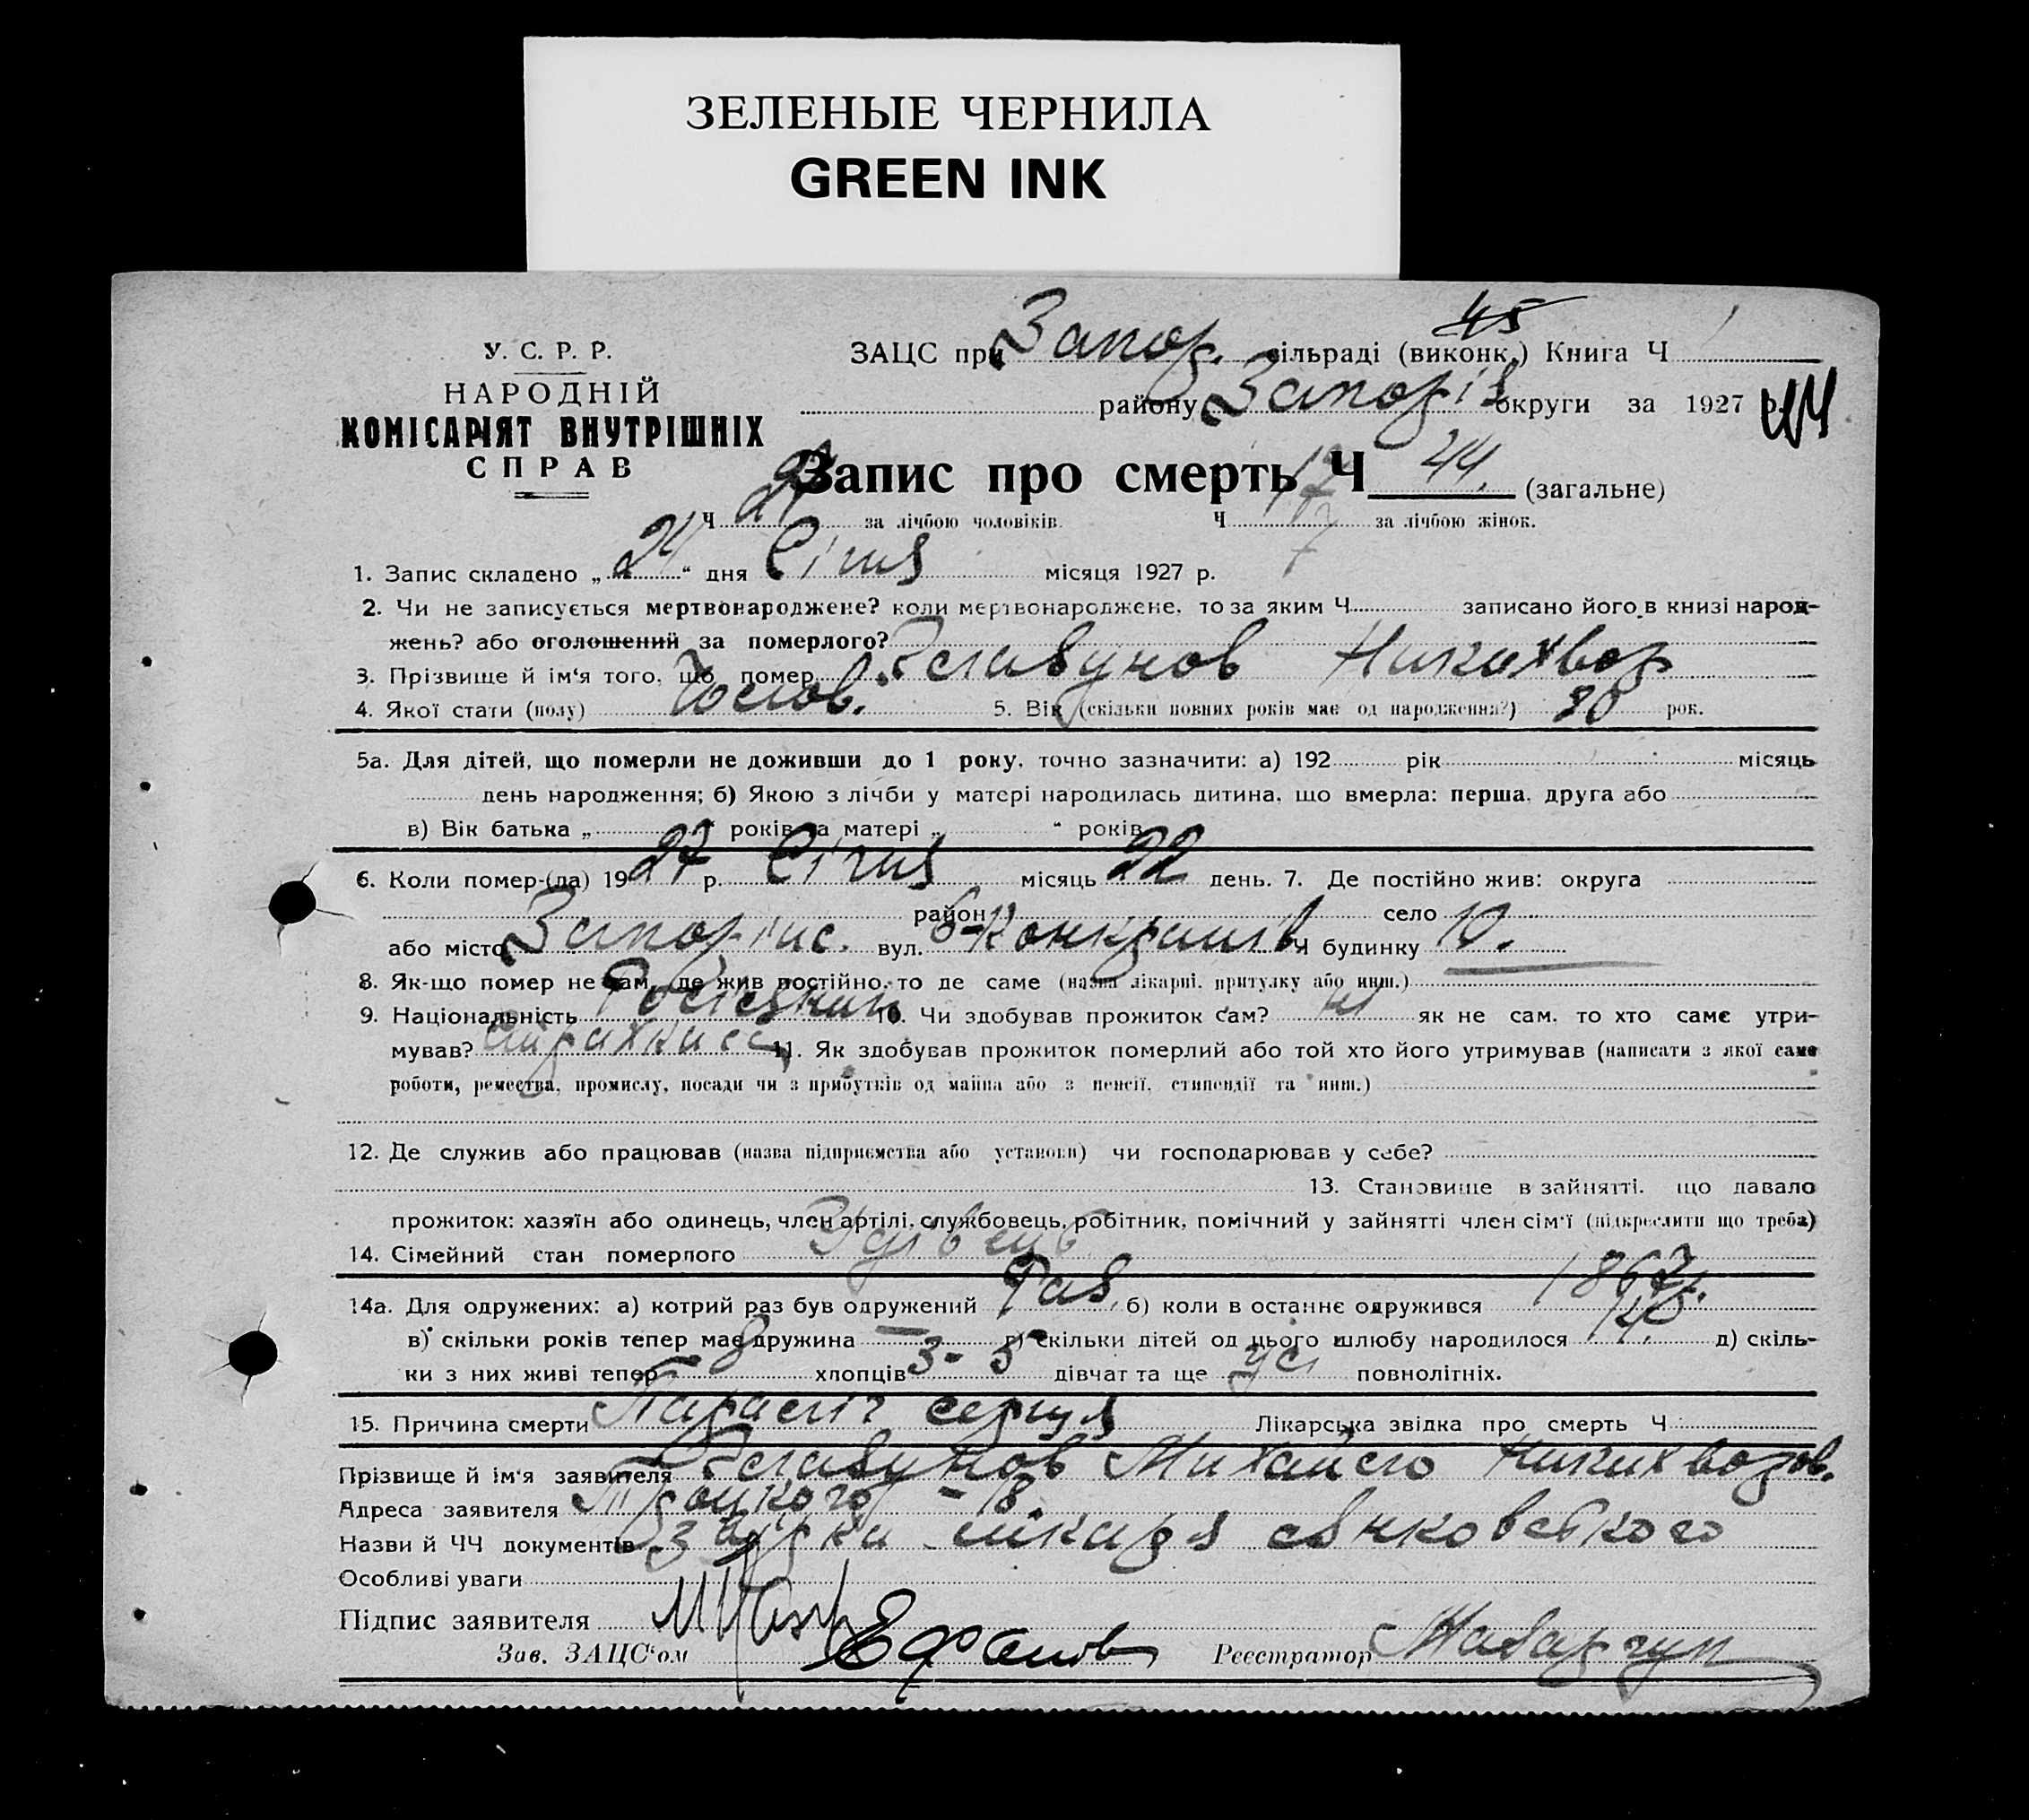 ЗЕЛЕНЫЕ ЧЕРНИЛА
GREEN INK
У. С. Р. Р.
НАРОДНІЙ
КОМІСАРІЯТ ВНУТРІШНІХ
СПРАВ
45
ЗАЦС при Запор. сільраді (виконк.) Книга Ч 1
району Запоріз округи за 1927 р.
44
Запис про смерть Ч 44. (загальне)
Ч 27 за лічбою чоловіків. Ч 17 за лічбою жінок.
17
1. Запис складено „ 24 “ дня Січня місяця 1927 р.
2. Чи не записується мертвонароджене? коли мертвонароджене, то за яким Ч. записано його в книзі народ-
жень? або оголошений за померлого?
3. Прізвище й ім'я того, що помер Никихвор
4. Якої стати (полу) Чолов. 5. Вік (скільки повних років має од народження?) 80 рок.
5а. Для дітей, що померли не доживши до 1 року, точно зазначити: а) 192 рік місяць
день народження; б) Якою з лічби у матері народилась дитина, що вмерла: перша, друга або
в) Вік батька „ “ років, а матері „ “ років
6. Коли помер-(ла) 1927 р. Січня місяць 22 день. 7. Де постійно жив: округа
район село
або місто вул. Ч будинку 10.
8. Як-що помер не там, де жив постійно, то де саме (назва лікарні, притулку або инш.)
9. Національність 10. Чи здобував прожиток сам? ні як не сам, то хто саме утри-
мував? 11. Як здобував прожиток померлий або той хто його утримував (написати з якої саме
роботи, ремества, промислу, посади чи з прибутків од майна або з пенсії, стипендії та инш.)
12. Де служив або працював (назва підприємства або установи) чи господарював у себе?
13. Становище в зайнятті, що давало
прожиток: хазяїн або одинець, член артілі, службовець, робітник, помічний у зайнятті член сім'ї (підкреслити що треба)
14. Сімейний стан померлого Удівець
14а. Для одружених: а) котрий раз був одружений І раз б) коли в останнє одружився 1867 р.
в) скільки років тепер має дружина — г) скільки дітей од цього шлюбу народилося д) скіль-
ки з них живі тепер 8 хлопців 3 - 5 дівчат та ще усі повнолітніх.
15. Причина смерти Параліч серця Лікарська звідка про смерть Ч
Прізвище й ім'я заявителя Михайло Никихворов.
Адреса заявителя Троцкого - 18.
Назви й ЧЧ документів лікаря
Особливі уваги
Підпис заявителя
Зав. ЗАЦС'ом
Реєстратор